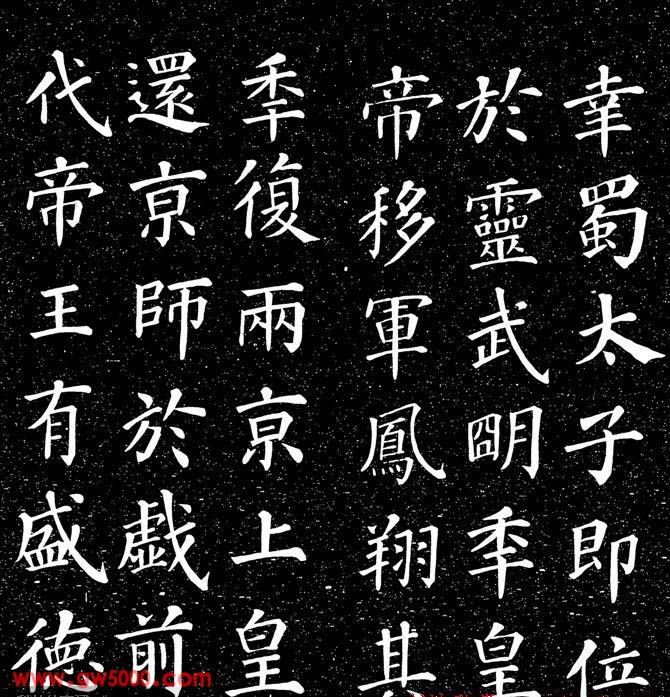 幸蜀太子即位
於靈武明季皇
帝移軍鳳翔其
季復兩京上皇
還京師於戲前
代帝王有盛德
www.gw5000.com